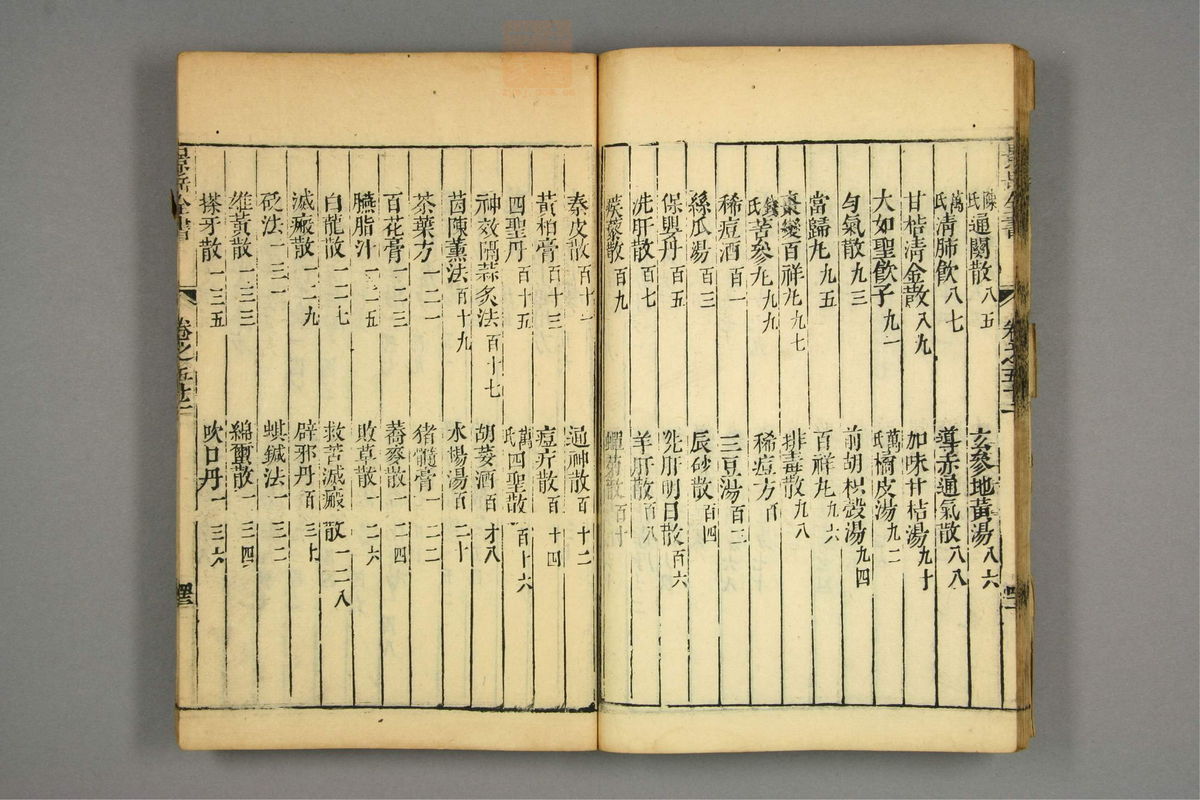 陳氏通關散八五
玄參地黃湯八六
萬氏淸肺飮八七
導赤通氣散八八
甘桔淸金散八九
加味甘桔湯九十
大如聖飮子九一
萬氏橘皮湯九二
勻氣散九三
前胡枳殼湯九四
當歸丸九五
百祥丸九六
棗變百祥丸九七
排毒散九八
錢氏苦參丸九九
稀痘方百
稀痘酒百一
三豆湯百二
絲瓜湯百三
辰砂散百四
保嬰丹百五
洗肝明目散百六
洗肝散百七
羊肝散百八
蒺藜散百九
蟬菊散百十
秦皮散百十一
通神散百十二
黃柏膏百十三
痘疔散百十四
四聖丹百十五
萬氏四聖散百十六
神效隔蒜灸法百十七
胡荽酒百十八
茵陳薰法百十九
水楊湯百二十
茶葉方一二一
猪髓膏一二二
百花膏一二三
蕎麥散一二四
臙脂汁一二五
敗草散一二六
白龍散一二七
救苦滅瘢散一二八
滅瘢散一二九
辟邪丹百三十
砭法一三一
蜞鍼法一三二
維黃散一三三
綿蠒散一三四
搽牙散一三五
吹口丹一三六
景岳全書
卷之五十一